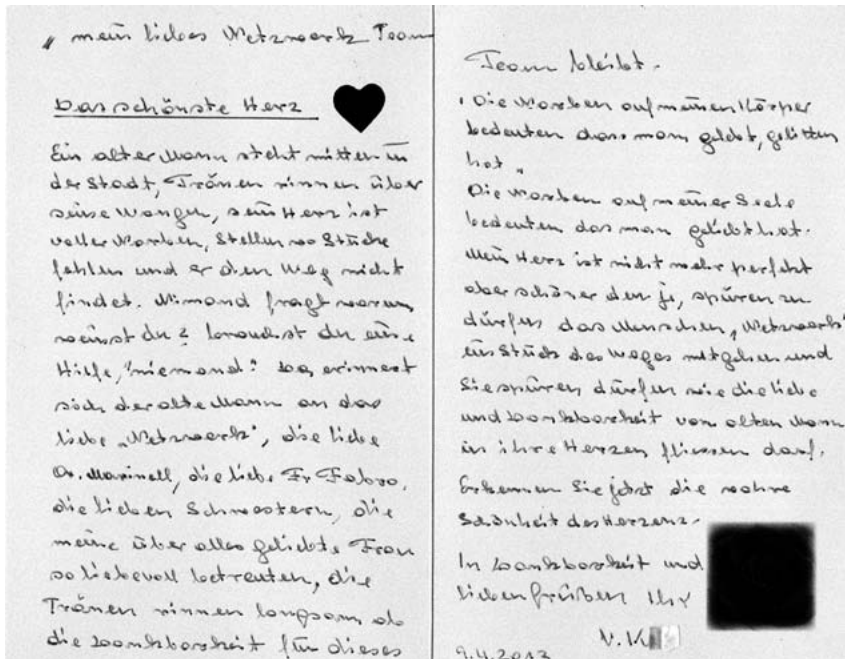 „ mein liebes Netzwerk Team
Das schönste Herz
Ein alter Mann steht mitten in
der Stadt, Tränen rinnen über
seine Wangen, sein Herz ist
voller Narben, Stellen wo Stücke
fehlen und er den Weg nicht
findet. Nimand fragt warum
weinst du? brauchst du eine
Hilfe, "niemand? Da erinnert
sich der alte Mann an das
liebe „Netzwerk", die liebe
Dr. Marinell, die liebe Fr Fabro,
die lieben Schwestern, die
meine über alles geliebte Frau
so liebevoll betreuten, die
Tränen rinnen langsam ab
die Dankbarkeit für dieses
Team bleibt.
„ Die Narben auf meinen Körper
bedeuten dass man gelebt, gelitten
hat "
Die Narben auf meiner Seele
bedeuten das man geliebt hat.
Mein Herz ist nicht mehr perfekt
aber schöner den je, spüren zu
dürfen das Menschen „Netzwerk"
ein Stück des Weges mitgehen und
Sie spüren dürfen wie die liebe
und Dankbarkeit vom alten Mann
in ihre Herzen fliessen darf.
Erkennen Sie jetzt die wahre
Schönheit des Herzens.
In Dankbarkeit und
lieben Grüßen Ihr
N. K
9.4.2013